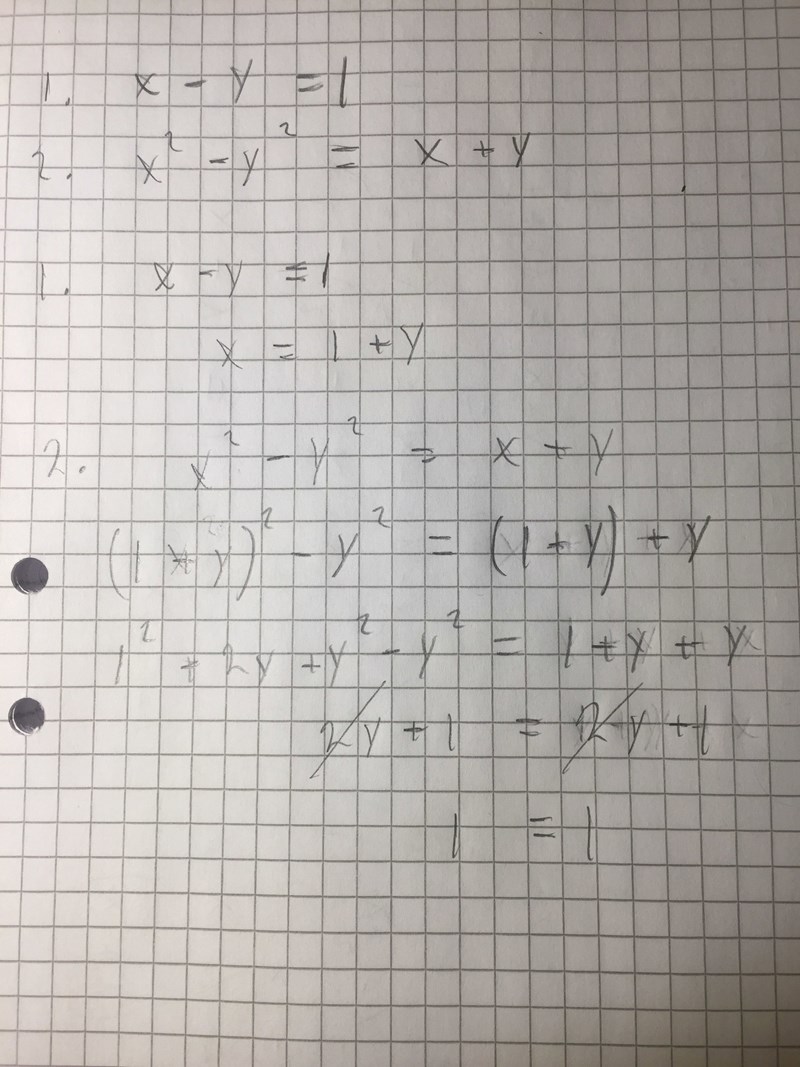 1. x - y = 1
2. x² - y² = x + y
1. x - y = 1
x = 1 + y
2. x² - y² = x + y
(1 + y)² - y² = (1 + y) + y
1² + 2y + y² - y² = 1 + y + y
2y + 1 = 2y + 1
1 = 1